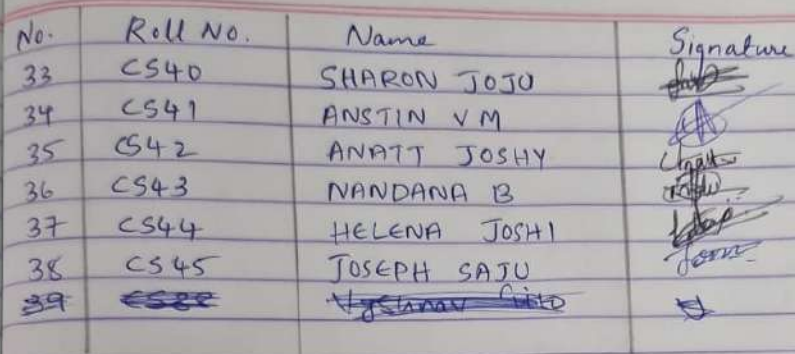 No. Roll No. Name Signature
33 CS40 SHARON JOJU
34 CS41 ANSTIN VM
35 CS42 ANATT JOSHY
36 CS43 NANDANA B
37 CS44 HELENA JOSHI
38 CS45 JOSEPH SAJU
39